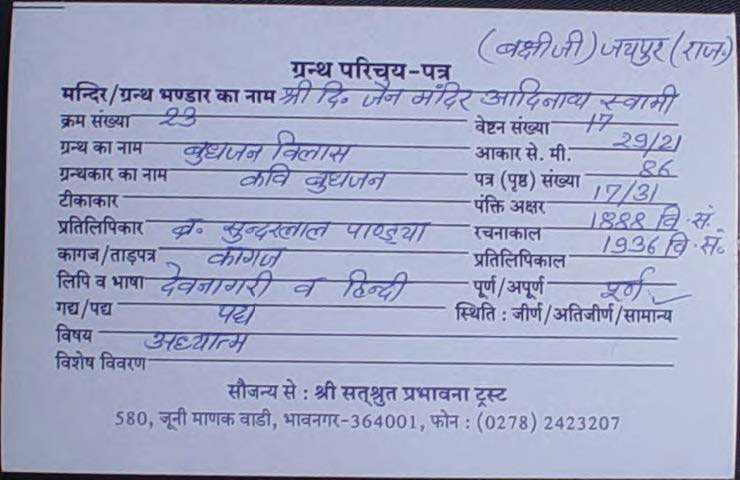 (बक्षीजी) जयपुर (राज.)
ग्रन्थ परिचय-पत्र
मन्दिर/ग्रन्थ भण्डार का नाम श्री दि. जैन मंदिर आदिनाथ स्वामी
क्रम संख्या 23 वेष्टन संख्या 17
ग्रन्थ का नाम बुधजन विलास आकार से. मी. 29/21
ग्रन्थकार का नाम कवि बुधजन पत्र (पृष्ठ) संख्या 86
टीकाकार पंक्ति अक्षर 17/31
प्रतिलिपिकार ब्र. सुन्दरलाल पाण्ड्या रचनाकाल 1888 वि. सं.
कागज/ताड़पत्र कागज प्रतिलिपिकाल 1936 वि. सं.
लिपि व भाषा देवनागरी व हिन्दी पूर्ण/अपूर्ण पूर्ण
गद्य/पद्य पद्य स्थिति : जीर्ण/अतिजीर्ण/सामान्य
विषय अध्यात्म
विशेष विवरण
सौजन्य से : श्री सत्श्रुत प्रभावना ट्रस्ट
580, जूनी माणक वाडी, भावनगर-364001, फोन : (0278) 2423207